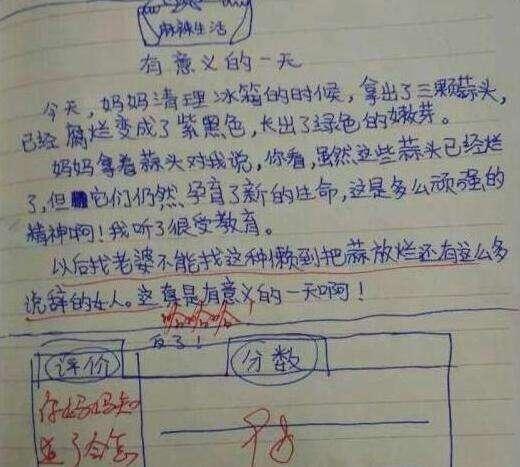 麻辣生活
有意义的一天
今天，妈妈清理冰箱的时候，拿出了三颗蒜头，
已经腐烂变成了紫黑色，长出了绿色的嫩芽。
妈妈拿着蒜头对我说，你看，虽然这些蒜头已经烂
了，但它们仍然孕育了新的生命，这是多么顽强的
精神啊！我听了很受教育。
以后找老婆不能找这种懒到把蒜放烂还有这么多
说辞的女人。这真是有意义的一天啊！
哈哈哈哈
评价
分数
你妈妈知
道了会